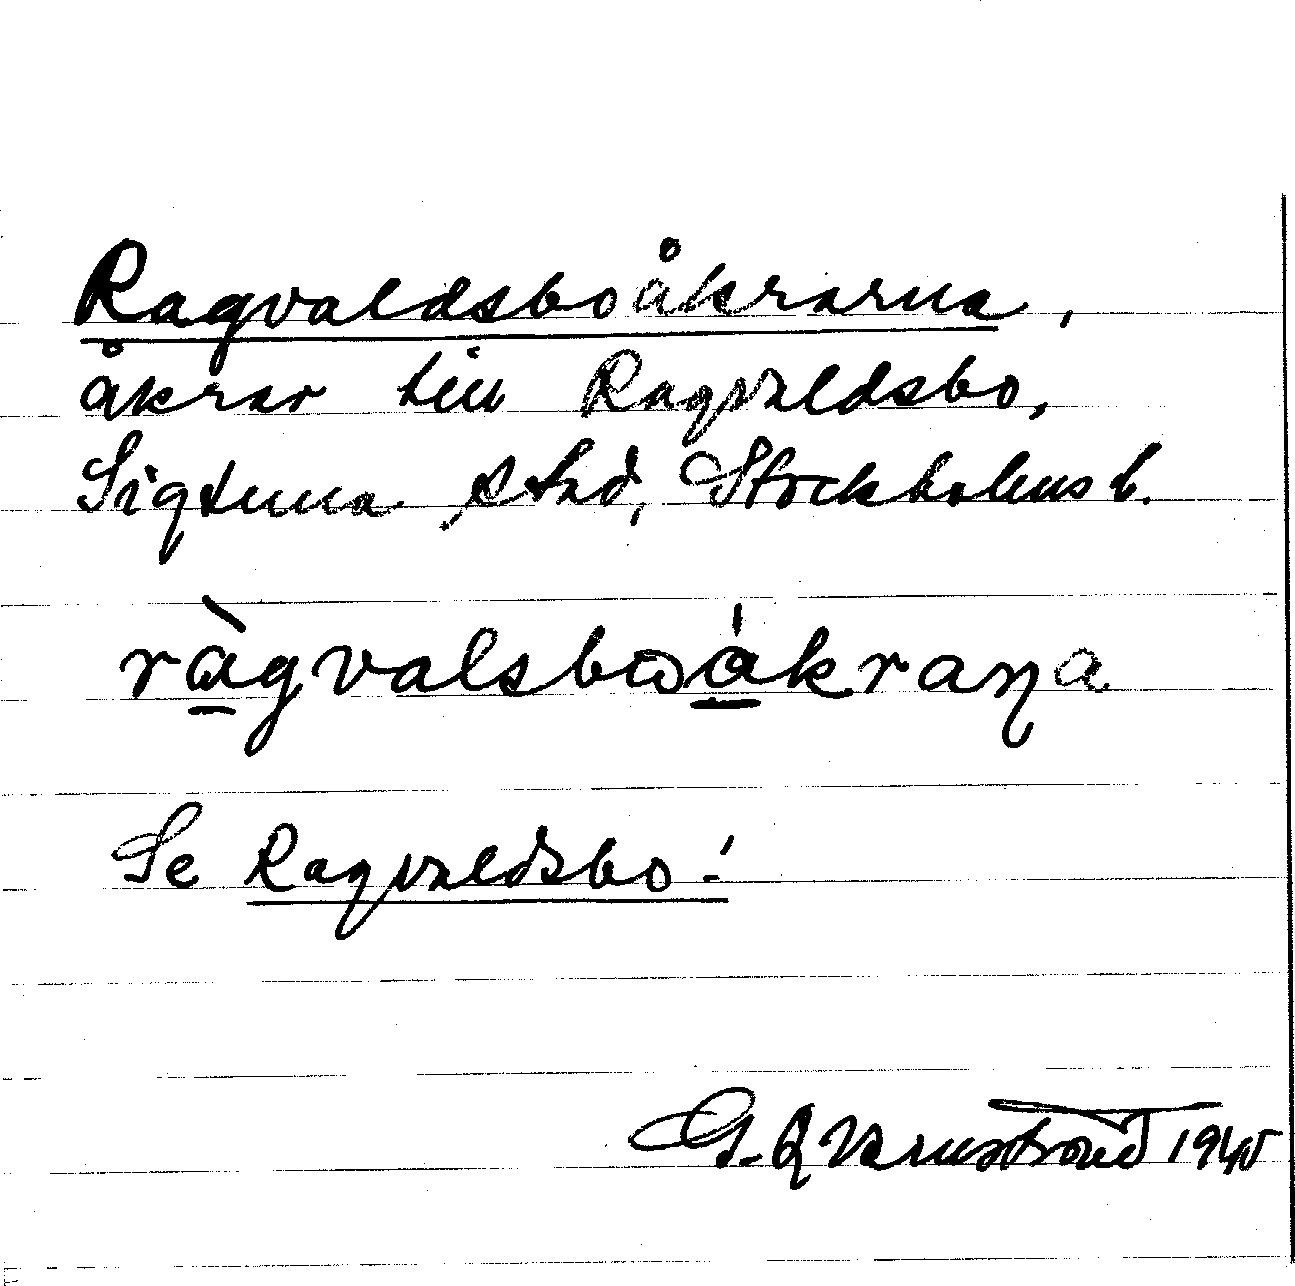 Ragvaldsboåkrarna,
åkrar till Ragvaldsbo,
Sigtuna stad, Stockholms l.
ràgvalsbωákraɳa
Se Ragvaldsbo!
G. Qvarnström 1945